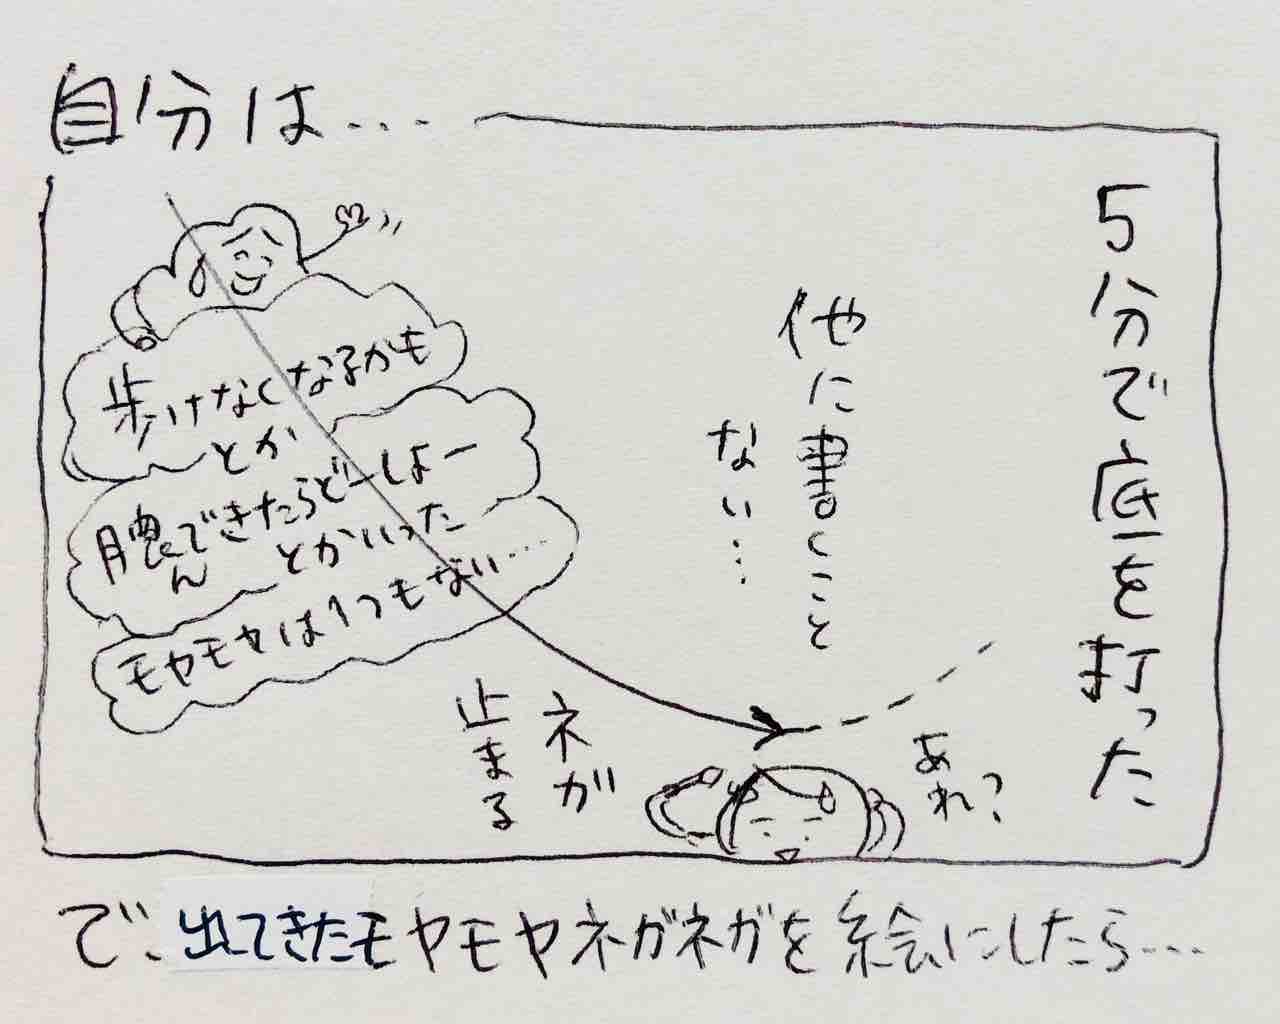 自分は...
5分で底を打った
他に書くこと
ない...
歩けなくなるかも
とか
膿んできたらどーしよー
とかいった
モヤモヤは1つもない...
ネガ
止まる
あれ?
で、出てきたモヤモヤネガネガを絵にしたら...